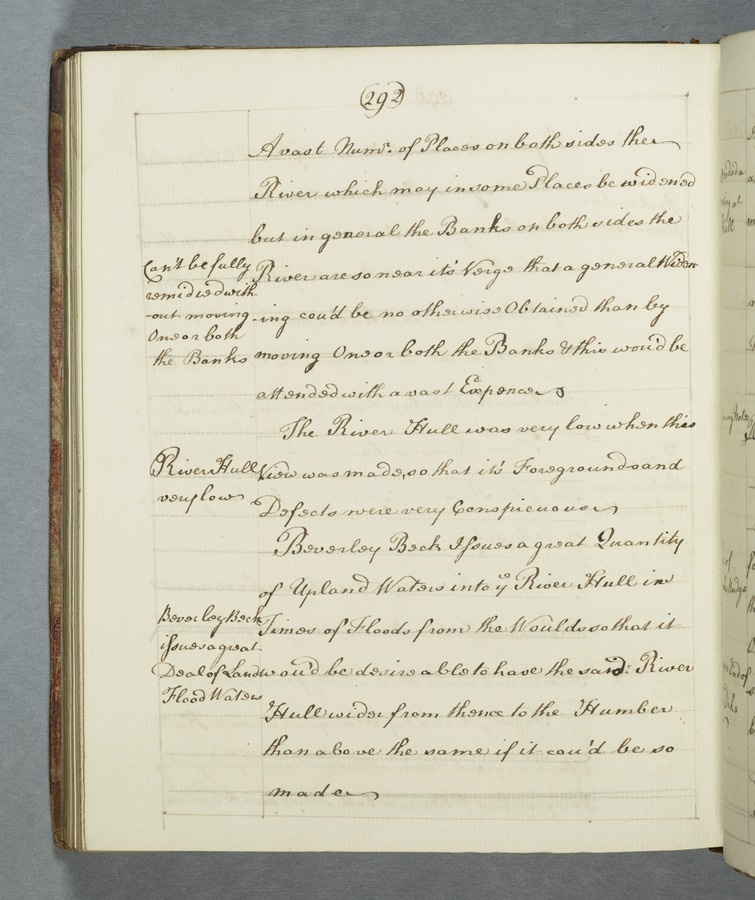 292
A vast Numr. of Places on both sides the
River which may in some Places be widened
but in general the Banks on both sides the
Can't be fully
remidied with
-out moving
One or both
the Banks
River are so near it's Verge that a general Widen
-ing cou'd be no otherwise Obtained than by
moving One or both the Banks & this wou'd be
attended with a vast Expence
The River Hull was very low when this
River Hull
very low
View was made, so that it's Foregrounds and
Defects were very Conspicuous
Beverley Beck Issues a great Quantity
of Upland Waters into ye River Hull in
Beverley Beck
issues a great
Deal of Land
Flood Waters
Times of Floods from the Woulds so that it
wou'd be desireable to have the said: River
Hull wider from thence to the Humber
than above the same if it cou'd be so
made